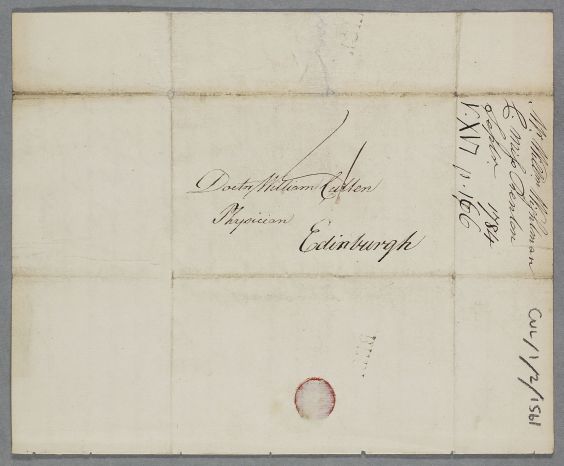 Doctr William Cullen
Physician
Edinburgh
Mr William Wightman
C. Miss Renton
Septr 1784
V.XVI p.166
CUL/1/2/1561